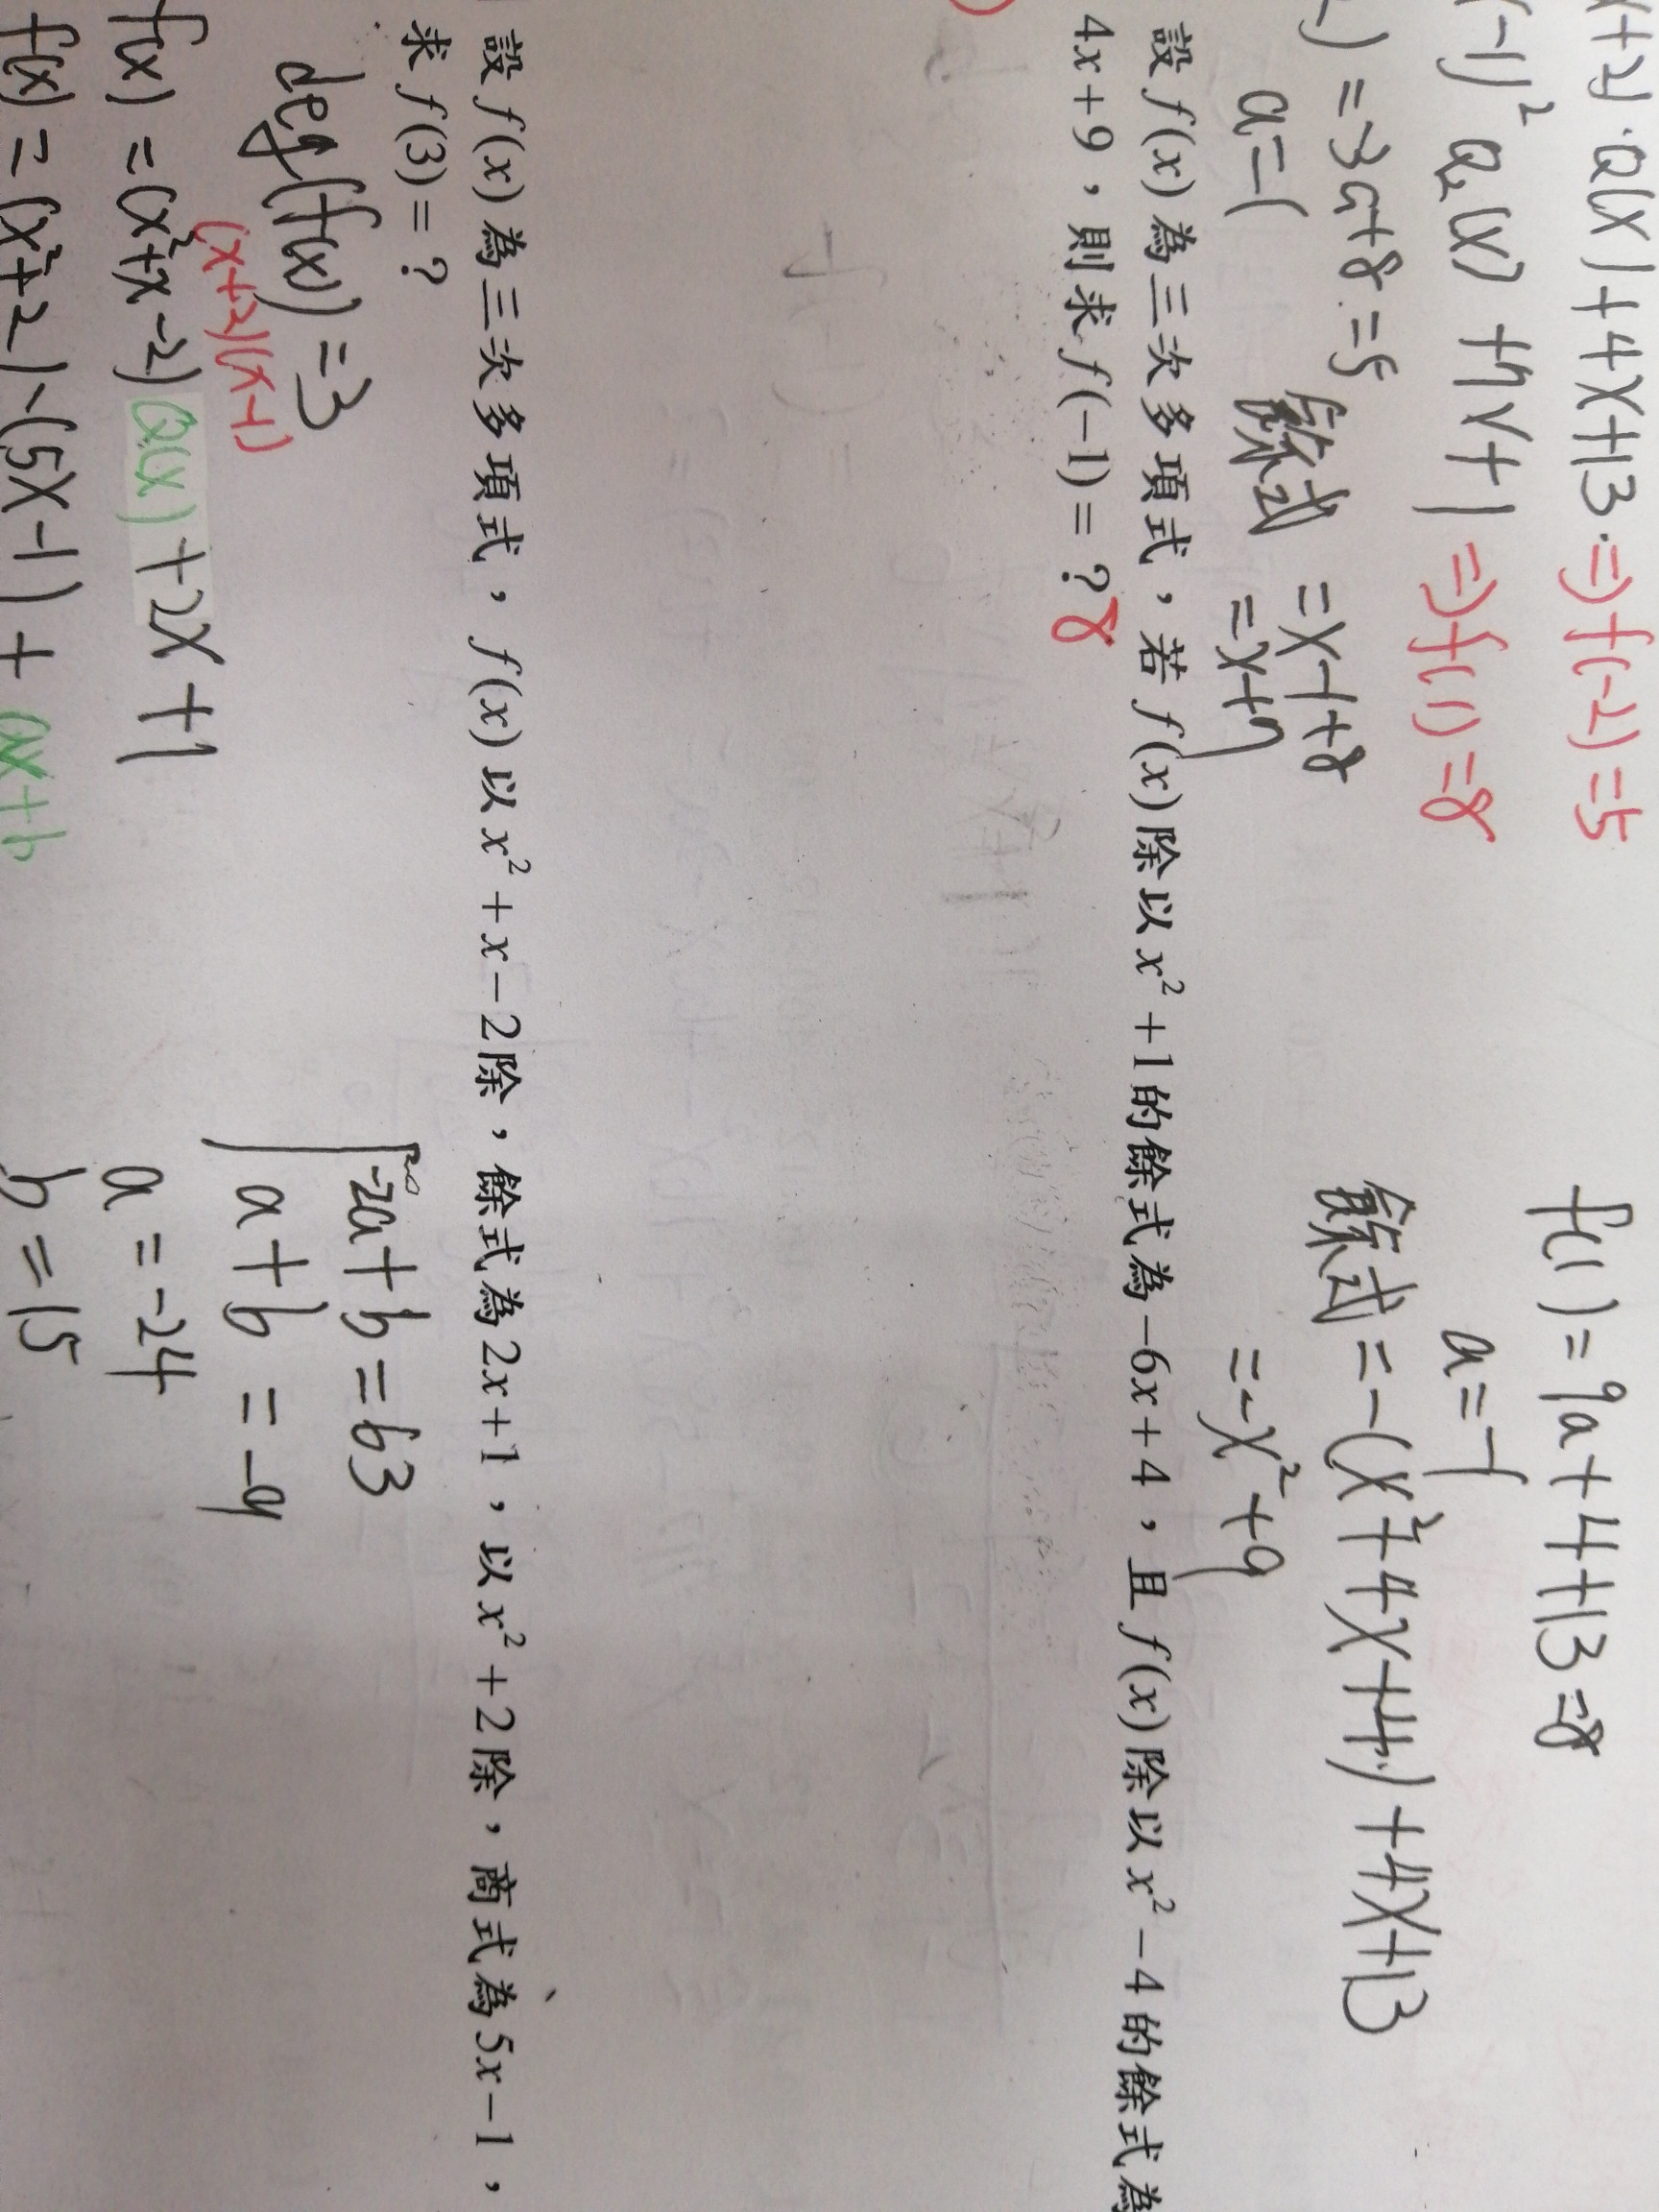 x+2)·Q(x)+4x+13·⇒f(-2)=5
(-1)²Q₂(x)+7x+1⇒f(1)=8
f(1)=9a+4+13=8
a=-1
-)=-3a+8=5
a=-1
餘式=x-1+8
=x+7
餘式=-(x²+4x+4)+4x+13
=-x²+9
設f(x)為三次多項式，若f(x)除以x²+1的餘式為-6x+4，且f(x)除以x²-4的餘式為
4x+9，則求f(-1)=？8
設f(x)為三次多項式，f(x)以x²+x-2除，餘式為2x+1，以x²+2除，商式為5x-1，
求f(3)=？
deg(f(x))=3
(x+2)(x-1)
f(x)=(x²+x-2)Q(x)+2x+1
f(x)=(x²+2)·(5x-1)+ax+b
-2a+b=63
a+b=-9
a=-24
b=15